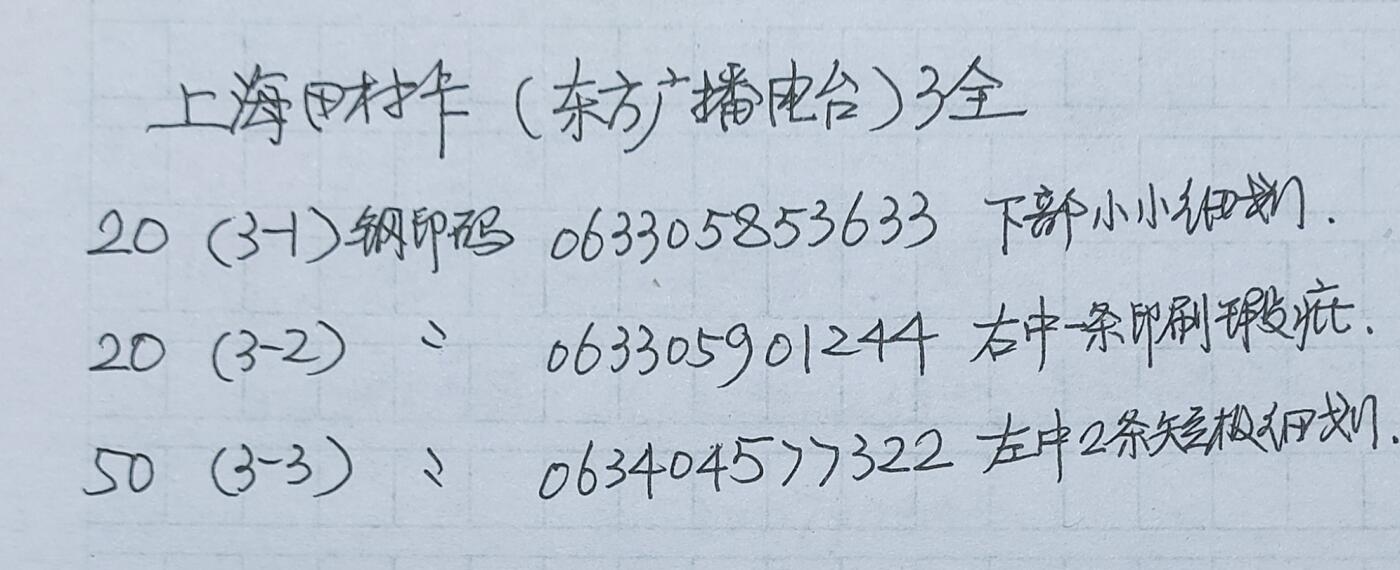 上海田村卡（东方广播电台）3全
20 (3-1) 钢印码 063305853633 下部小小细划.
20 (3-2) 〃 063305901244 右中一条印刷瑕疵.
50 (3-3) 〃 063404577322 左中2条短极细划.